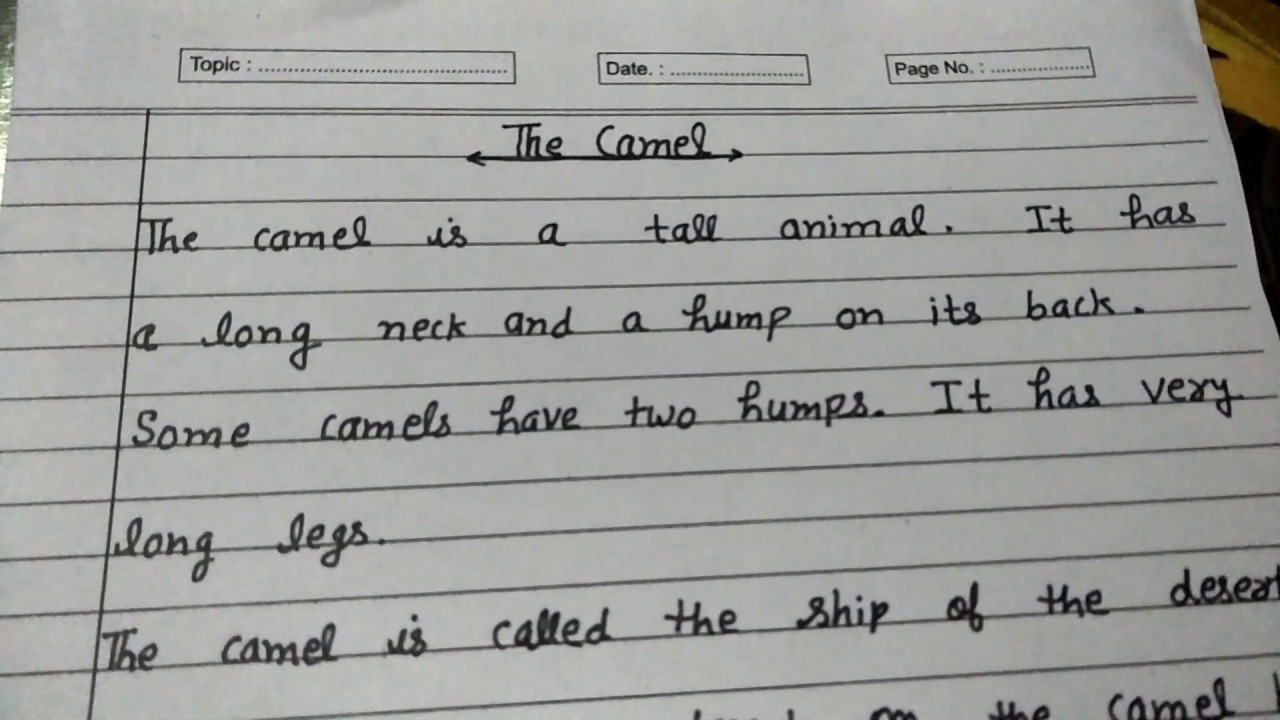 Topic : ............................................ Date. : ........................... Page No. : ....................
The Camel
The camel is a tall animal. It has
a long neck and a hump on its back.
Some camels have two humps. It has very
long legs.
The camel is called the ship of the desert
on the camel